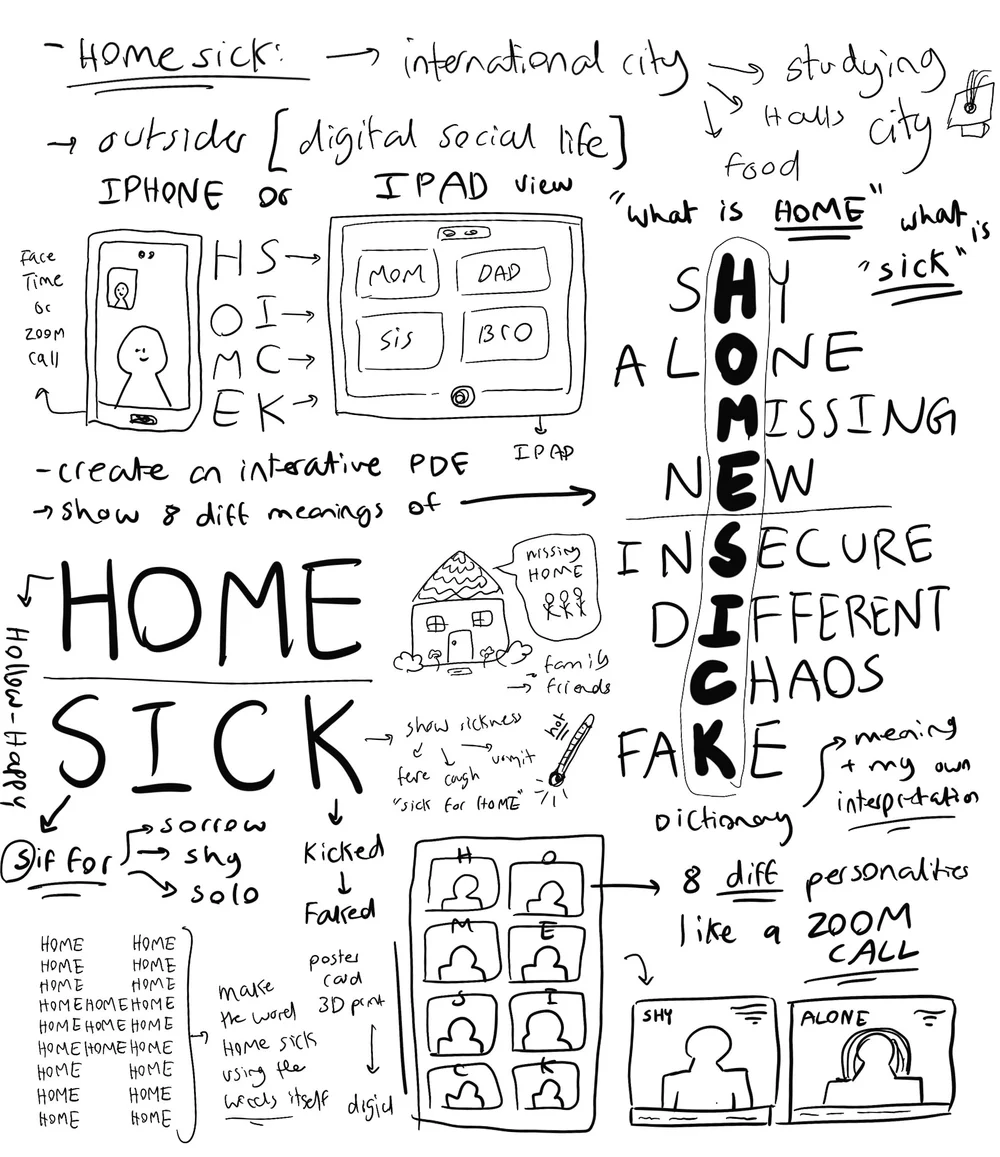 - HOME sick: → international city → studying
Halls
city
food
→ outsider [digital social life]
IPHONE or IPAD view
"what is HOME" what is "sick"
Face
Time
or
zoom
call
H S →
O I →
M C →
E K →
MOM DAD
SIS BRO
IPAD
SHY
ALONE
MISSING
NEW
INSECURE
DIFFERENT
CHAOS
FAKE
- create an interative PDF
→ show 8 diff meanings of →
HOME
SICK
Hollow-Happy
missing
HOME
→ family
→ friends
→ show sickness
cough vomit
"sick for HOME"
hot
Dictionary
meaning
+ my own
interpretation
S if for
→ sorrow
→ shy
→ solo
Kicked
↓
Faked
HOME HOME
HOME HOME
HOME HOME
HOME HOME HOME
HOME HOME HOME
HOME HOME HOME
HOME HOME
HOME HOME
HOME HOME
make
the word
Home sick
using the
words itself
poster
card
3D print
H O
M E
S I
C K
→ 8 diff personalities
like a ZOOM
CALL
SHY
ALONE